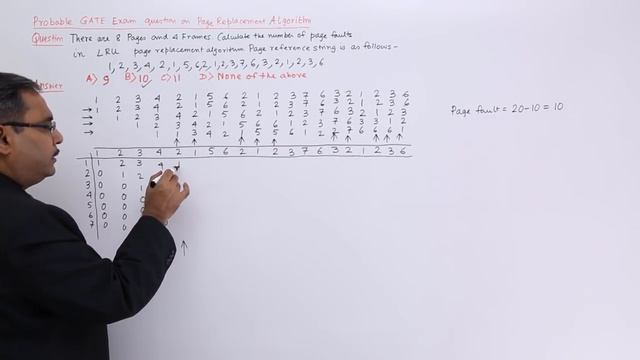 Probable GATE Exam question on Page Replacement Algorithm
Question There are 8 Pages and 4 Frames. Calculate the number of page faults
in LRU page replacement algorithm. Page reference string is as follows -
1, 2, 3, 4, 2, 1, 5, 6, 2, 1, 2, 3, 7, 6, 3, 2, 1, 2, 3, 6
Answer A> 9 B> 10 C> 11 D> None of the above
1 2 3 4 2 1 5 6 2 1 2 3 7 6 3 2 1 2 3 6
1 2 3 4 2 1 5 6 2 1 2 3 7 6 3 2 1 2 3 6
1 2 3 4 2 1 5 6 2 1 2 3 7 6 3 2 1 2 3
1 2 3 4 2 1 5 6 6 1 2 3 7 6 3 3 1 2
1 3 4 2 1 5 5 6 1 2 2 7 6 6 6 1
Page fault = 20-10 = 10
1 2 3 4 2 1 5 6 2 1 2 3 7 6 3 2 1 2 3 6
1 1 2 3 4
2 0 1 2
3 0 0 1
4 0 0 0
5 0 0 0
6 0 0 0
7 0 0